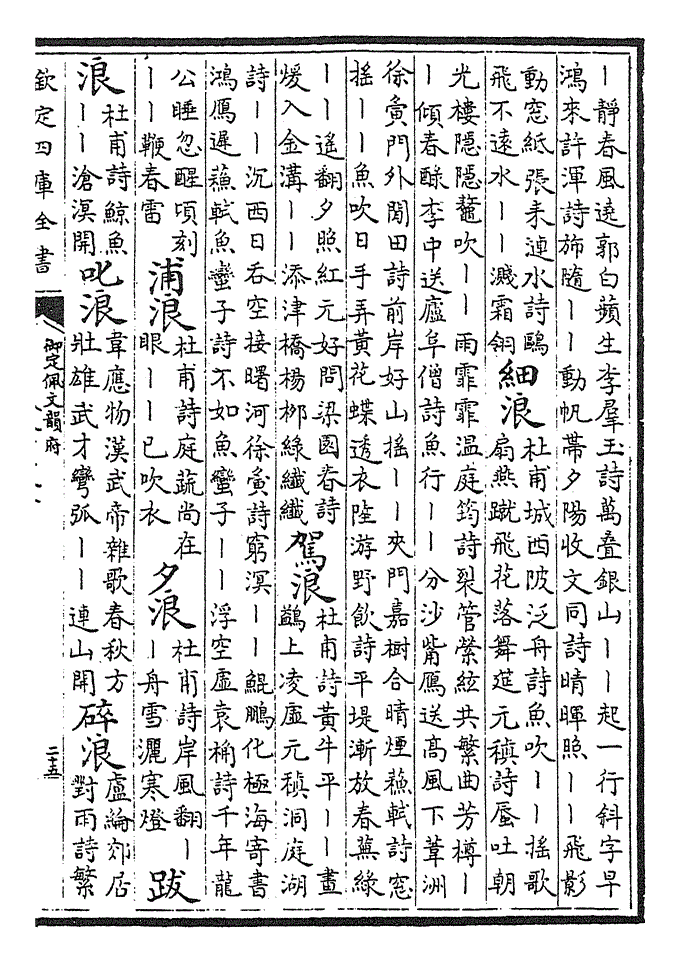 ｜靜春風遶郭白蘋生李羣玉詩萬疊銀山｜｜起一行斜字早
鴻來許渾詩旆隨｜｜動帆帶夕陽收文同詩晴暉照｜｜飛影
動窓紙張耒漣水詩鷗
飛不遠水｜｜濺霜翎
細浪
杜甫城西陂泛舟詩魚吹｜｜搖歌
扇燕蹴飛花落舞筵元稹詩蜃吐朝
光樓隱隱鼇吹｜｜雨霏霏温庭筠詩裂管縈絃共繁曲芳樽｜
｜傾春酴李中送廬阜僧詩魚行｜｜分沙觜鴈送高風下葦洲
徐夤門外閒田詩前岸好山搖｜｜夾門嘉樹合晴煙蘓軾詩窓
搖｜｜魚吹日手弄黄花蝶透衣陸游野飲詩平堤漸放春蕪綠
｜｜遥翻夕照紅元好問梁園春詩
煖入金溝｜｜添津橋楊栁綠纖纖
駕浪
杜甫詩黄牛平｜｜畫
鷁上凌虛元稹洞庭湖
詩｜｜沉西日吞空接曙河徐夤詩窮溟｜｜鯤鵬化極海寄書
鴻鴈遲蘓軾魚蠻子詩不如魚蠻子｜｜浮空虛袁桷詩千年龍
公睡忽醒頃刻
｜｜鞭春雷
浦浪
杜甫詩庭蔬尚在
眼｜｜已吹衣
夕浪
杜甫詩岸風翻｜
｜舟雪灑寒燈
跋
浪
杜甫詩鯨魚
｜｜滄溟開
叱浪
韋應物漢武帝雜歌春秋方
壯雄武才彎弧｜｜連山開
碎浪
盧綸郊居
對雨詩繁
欽定四庫全書
御定佩文韻府
二十五